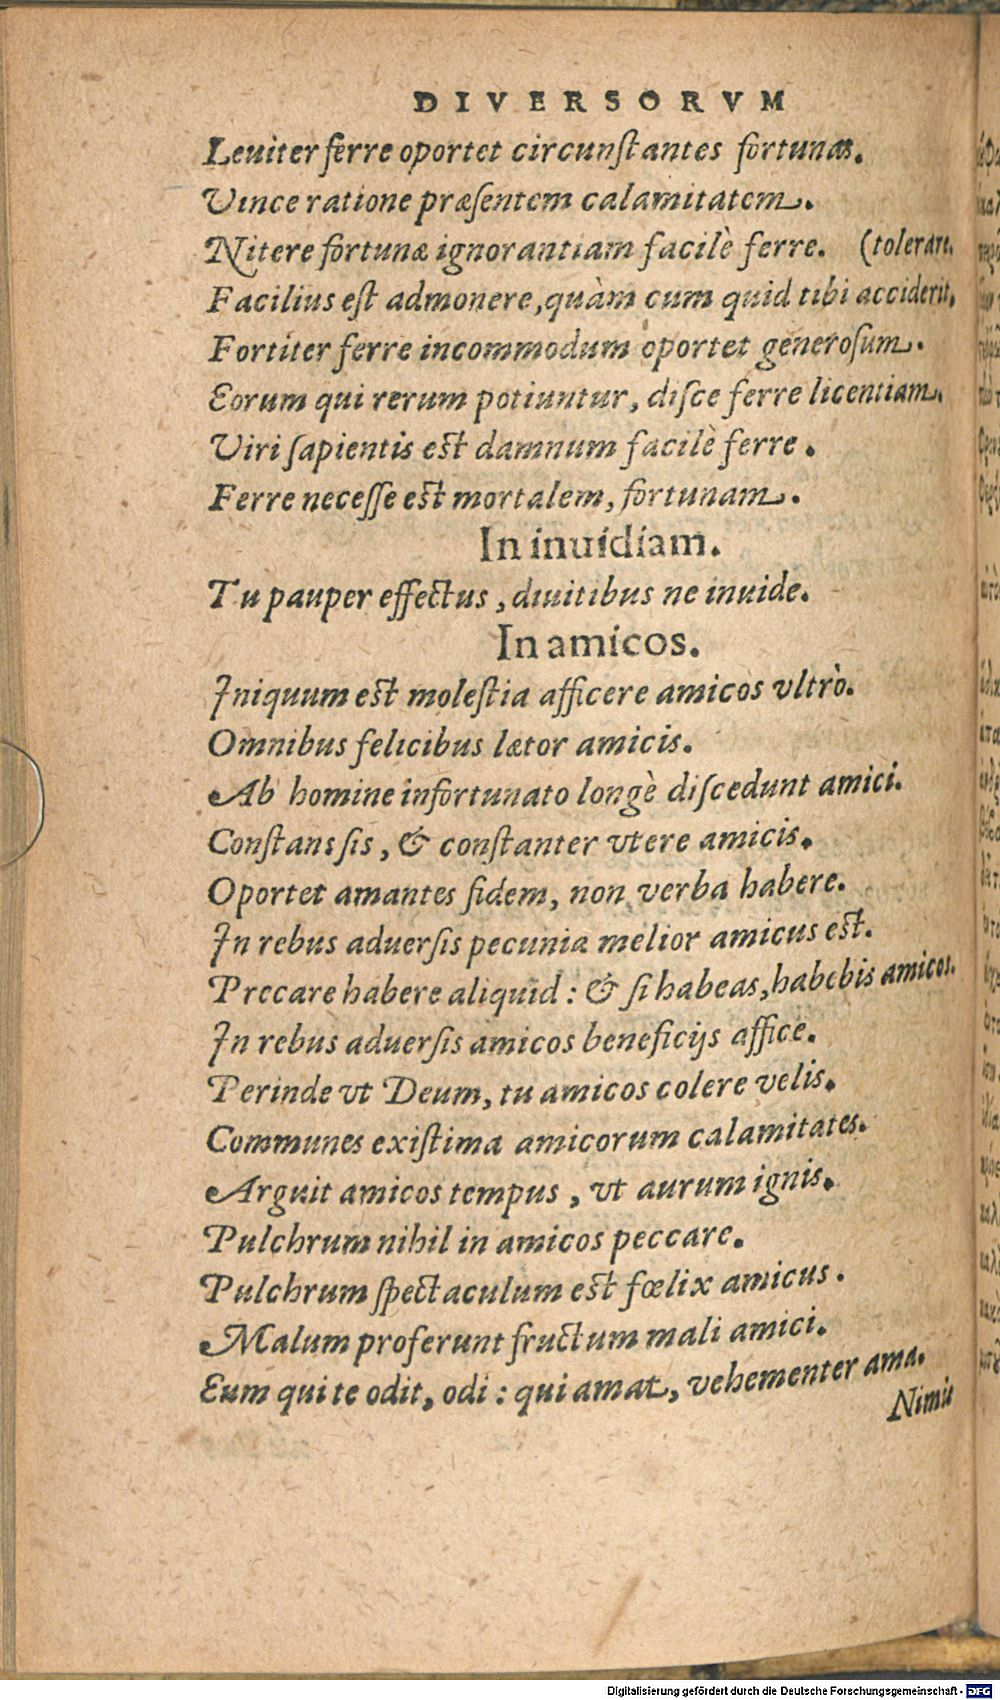 DIVERSORVM
Leuiter ferre oportet circunſtantes fortunas.
Vince ratione præſentem calamitatem.
Nitere fortunæ ignorantiam facilè ferre. (tolerare.
Facilius eſt admonere, quàm cum quid tibi acciderit,
Fortiter ferre incommodum oportet generoſum.
Eorum qui rerum potiuntur, diſce ferre licentiam.
Viri ſapientis eſt damnum facilè ferre.
Ferre neceſſe eſt mortalem, fortunam.
In inuidiam.
Tu pauper effectus, diuitibus ne inuide.
In amicos.
Iniquum eſt moleſtia afficere amicos vltrò.
Omnibus felicibus lætor amicis.
Ab homine infortunato longè diſcedunt amici.
Conſtans ſis, & conſtanter vtere amicis.
Oportet amantes fidem, non verba habere.
In rebus aduerſis pecunia melior amicus eſt.
Precare habere aliquid: & ſi habeas, habebis amicos.
In rebus aduerſis amicos beneficijs affice.
Perinde vt Deum, tu amicos colere velis.
Communes exiſtima amicorum calamitates.
Arguit amicos tempus, vt aurum ignis.
Pulchrum nihil in amicos peccare.
Pulchrum ſpectaculum eſt fœlix amicus.
Malum proferunt fructum mali amici.
Eum qui te odit, odi: qui amat, vehementer ama.
Nimis
Digitalisierung gefördert durch die Deutsche Forschungsgemeinschaft - DFG